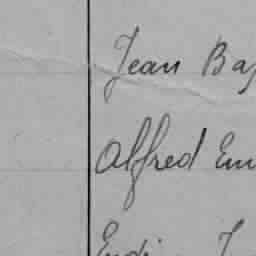 Jean Ba
Alfred Em